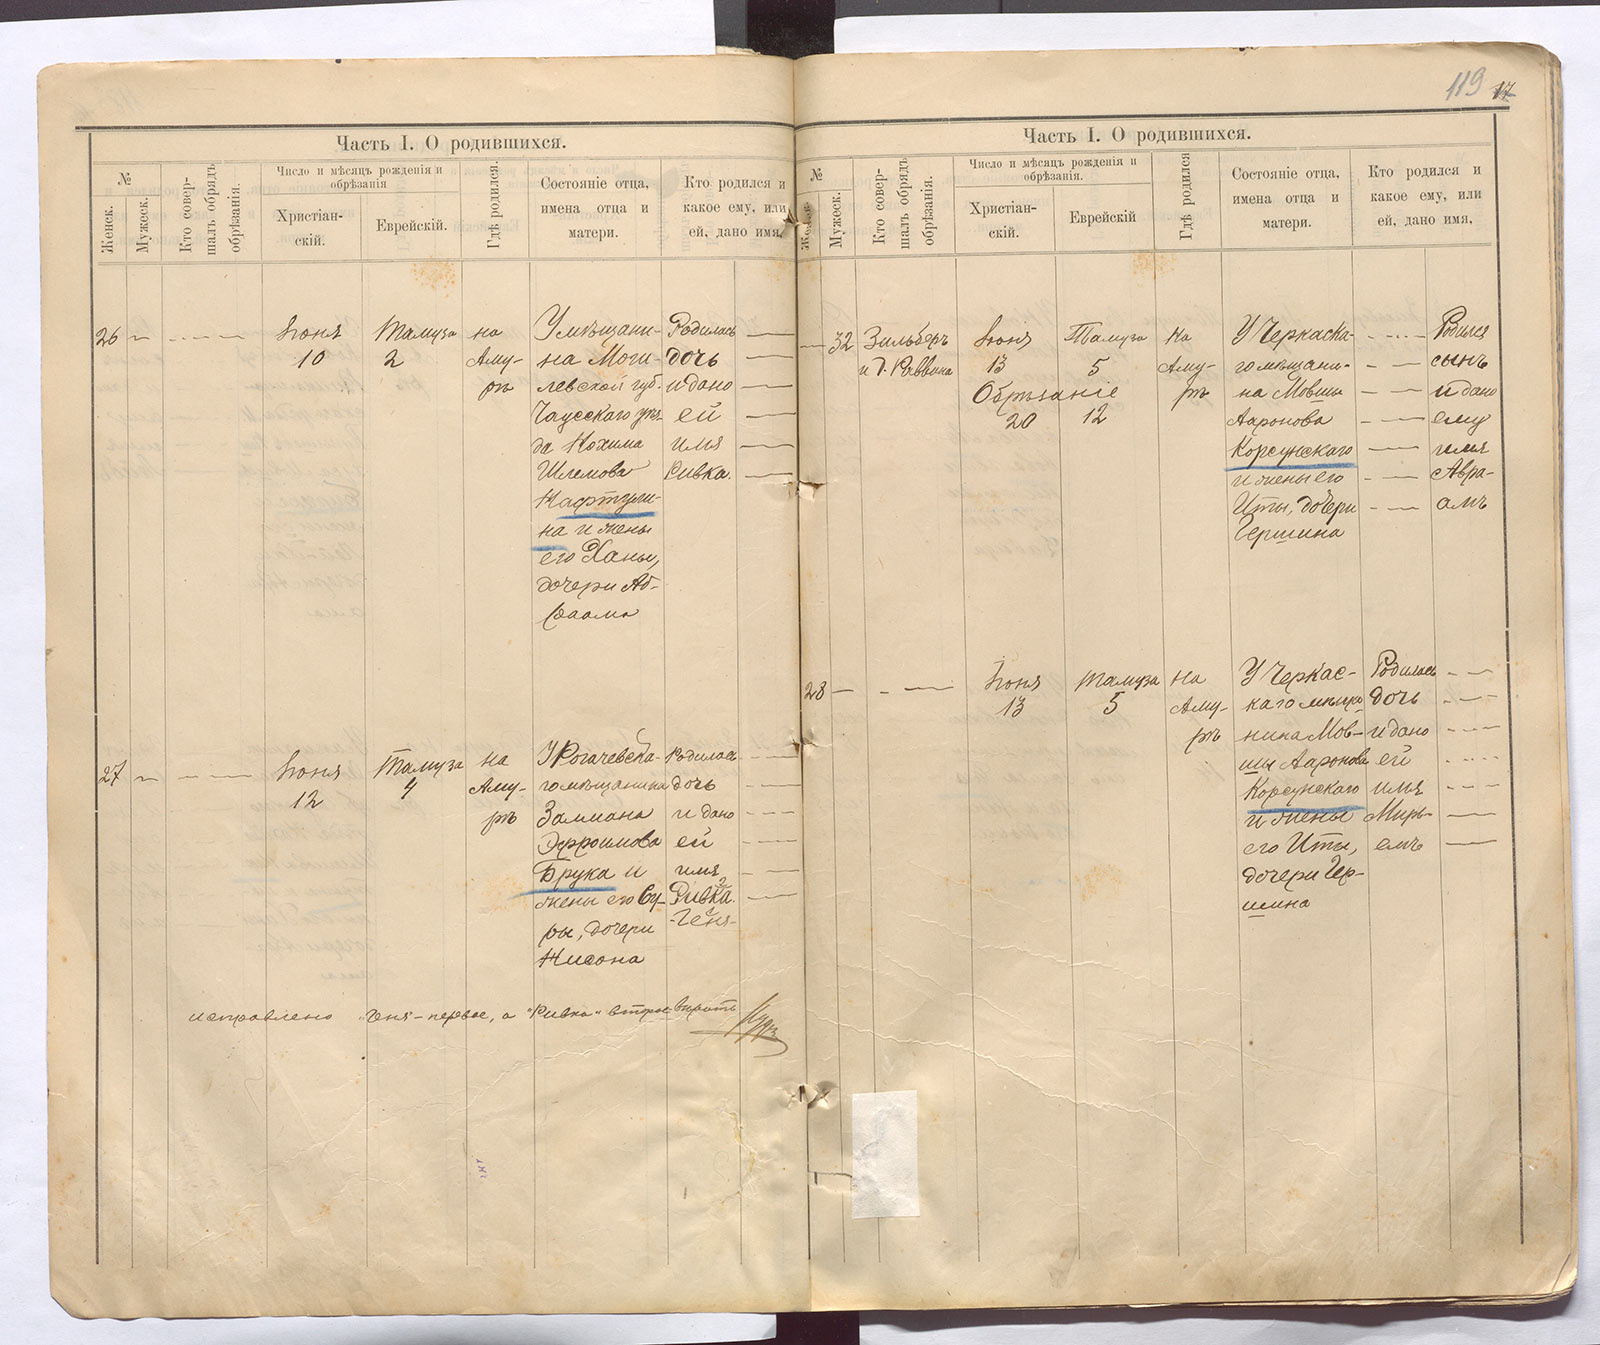 119 17
Часть I. О родившихся.
№
Женск.
Мужеск.
Кто совер-
шалъ обрядъ
обрѣзанія.
Число и мѣсяцъ рожденія и
обрѣзанія
Христіан-
скій.
Еврейскій.
Гдѣ родился.
Состояніе отца,
имена отца и
матери.
Кто родился и
какое ему, или
ей, дано имя.
26
Іюня
10
Тамуза
2
на
Аму-
рѣ
У мѣщани-
на Моги-
левской губ.
Чаусского уѣз-
да Нохима
Шлемова
Нафтули-
на и жены
его Ханы,
дочери Аб-
раама
Родилась
дочь
и дано
ей
имя
Ривка.
27
Іюня
12
Тамуза
4
на
Аму-
рѣ
У Рогачевска-
го мѣщанина
Залмана
Эфроимова
Брука и
жены его Су-
ры, дочери
Нисона
Родилась
дочь
и дано
ей
имя
2
Ривка.
1
-Геня-
исправлено „Геня"-первое, а „Ривка" второе вѣрить
Часть I. О родившихся.
№
Женск.
Мужеск.
Кто совер-
шалъ обрядъ
обрѣзанія.
Число и мѣсяцъ рожденія и
обрѣзанія.
Христіан-
скій.
Еврейскій
Гдѣ родился
Состояніе отца,
имена отца и
матери.
Кто родился и
какое ему, или
ей, дано имя.
32
Зильберъ
и д. Раввина
Іюня
13
Обрѣзаніе
20
Тамуза
5
12
на
Аму-
рѣ
У Черкаска-
го мѣщани-
на Мовши
Ааронова
Корсунскаго
и жены его
Иты, дочери
Гершина
Родился
сынъ
и дано
ему
имя
Авра-
амъ
28
Іюня
13
Тамуза
5
на
Аму-
рѣ
У Черкас-
каго мѣща-
нина Мов-
ши Ааронова
Корсунскаго
и жены
его Иты,
дочери Гер-
шина
Родилась
дочь
и дано
ей
имя
Мирь-
емъ